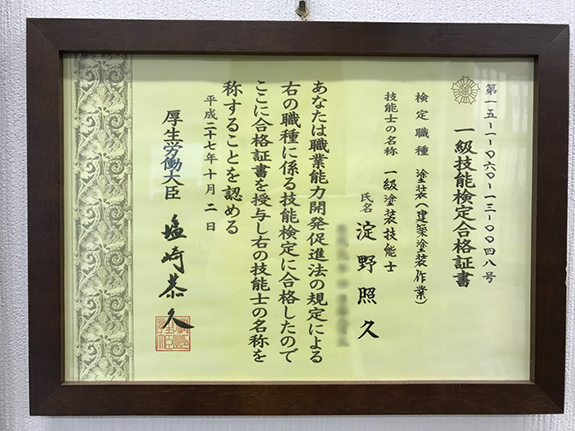 第一五-一-〇六〇-一三-〇〇四八号
一級技能検定合格証書
検定職種 塗装(建築塗装作業)
技能士の名称 一級塗装技能士
氏名 淀野照久
あなたは職業能力開発促進法の規定による
右の職種に係る技能検定に合格したので
ここに合格証書を授与し右の技能士の名称を
称することを認める
平成二十七年十月二日
厚生労働大臣 塩崎恭久